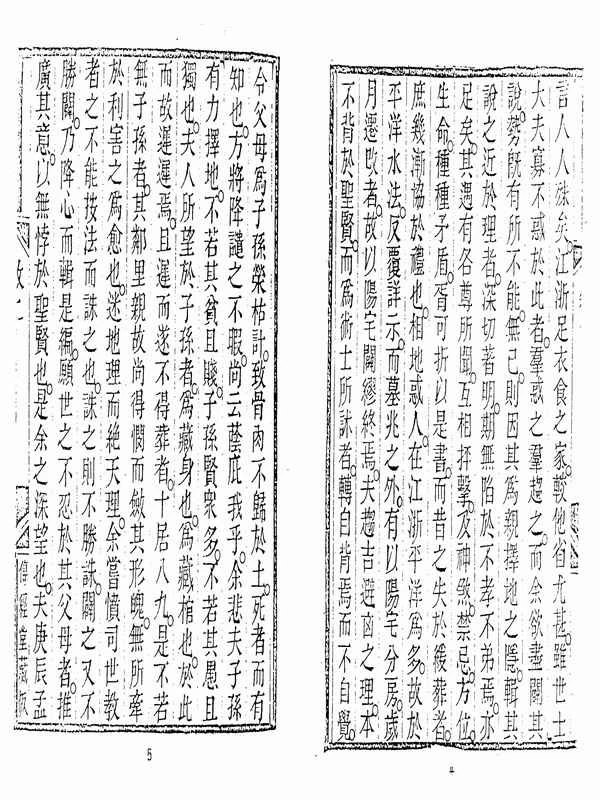 言人人殊矣。江浙足衣食之家。較他省尤甚。雖世士
大夫寡不惑於此者。羣惑之羣趨之。而余欲盡闢其
說。勢既有所不能。無已。則因其為親擇地之隱。輯其
說之近於理者。深切著明。期無陷於不孝不弟焉。亦
足矣。其遇有各尊所聞。互相抨擊。及神煞。禁忌。方位。
生命。種種矛盾。胥可折以是書。而昔之失於緩葬者。
庶幾漸協於禮也。相地惑人。在江浙平洋為多。故於
平洋水法。反覆詳示。而墓兆之外。有以陽宅分房。歲
月遷改者。故以陽宅闢繆終焉。夫趨吉避凶之理。本
不背於聖賢。而為術士所訹者。轉自背焉而不自覺。
令父母為子孫榮枯計。致骨肉不歸於土。死者而有
知也。方將降譴之不暇。尚云蔭庇我乎。余悲夫子孫
有力擇地。不若其貧且賤。子孫賢衆多。不若其愚且
獨也。夫人所望於子孫者。為藏身也。為藏棺也。於此
而故遲遲焉。且遲而遂不得葬者。十居八九。是不若
無子孫者。其鄰里親故尚得憫而斂其形魄。無所牽
於利害之為愈也。迷地理而絕天理。余嘗憤司世教
者之不能按法而誅之也。誅之則不勝誅。闢之又不
勝闢。乃降心而輯是編。願世之不忍於其父母者。推
廣其意。以無悖於聖賢也。是余之深望也。夫庚辰孟
敘二
傳經堂藏版
5
4